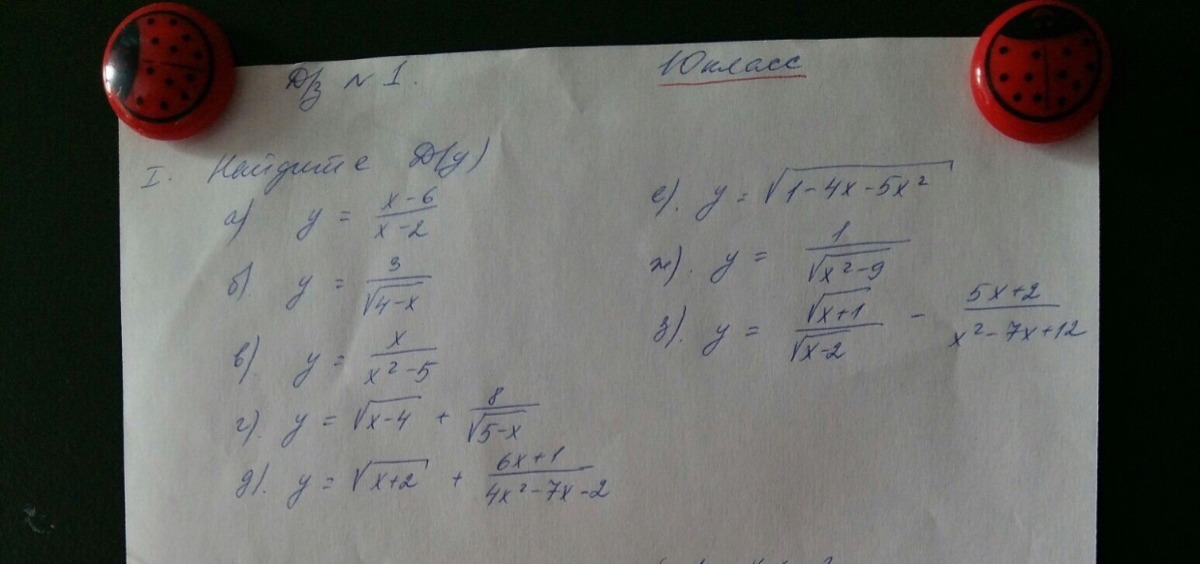 Д/з N 1.
10 класс
I. Найдите D(y)
а) y = (x-6)/(x-2)
б) y = 3/√(4-x)
в) y = x/(x²-5)
г). y = √(x-4) + 8/√(5-x)
д). y = √(x+2) + (6x+1)/(4x²-7x-2)
е). y = √(1-4x-5x²)
ж). y = 1/√(x²-9)
з). y = √(x+1)/√(x-2) - (5x+2)/(x²-7x+12)